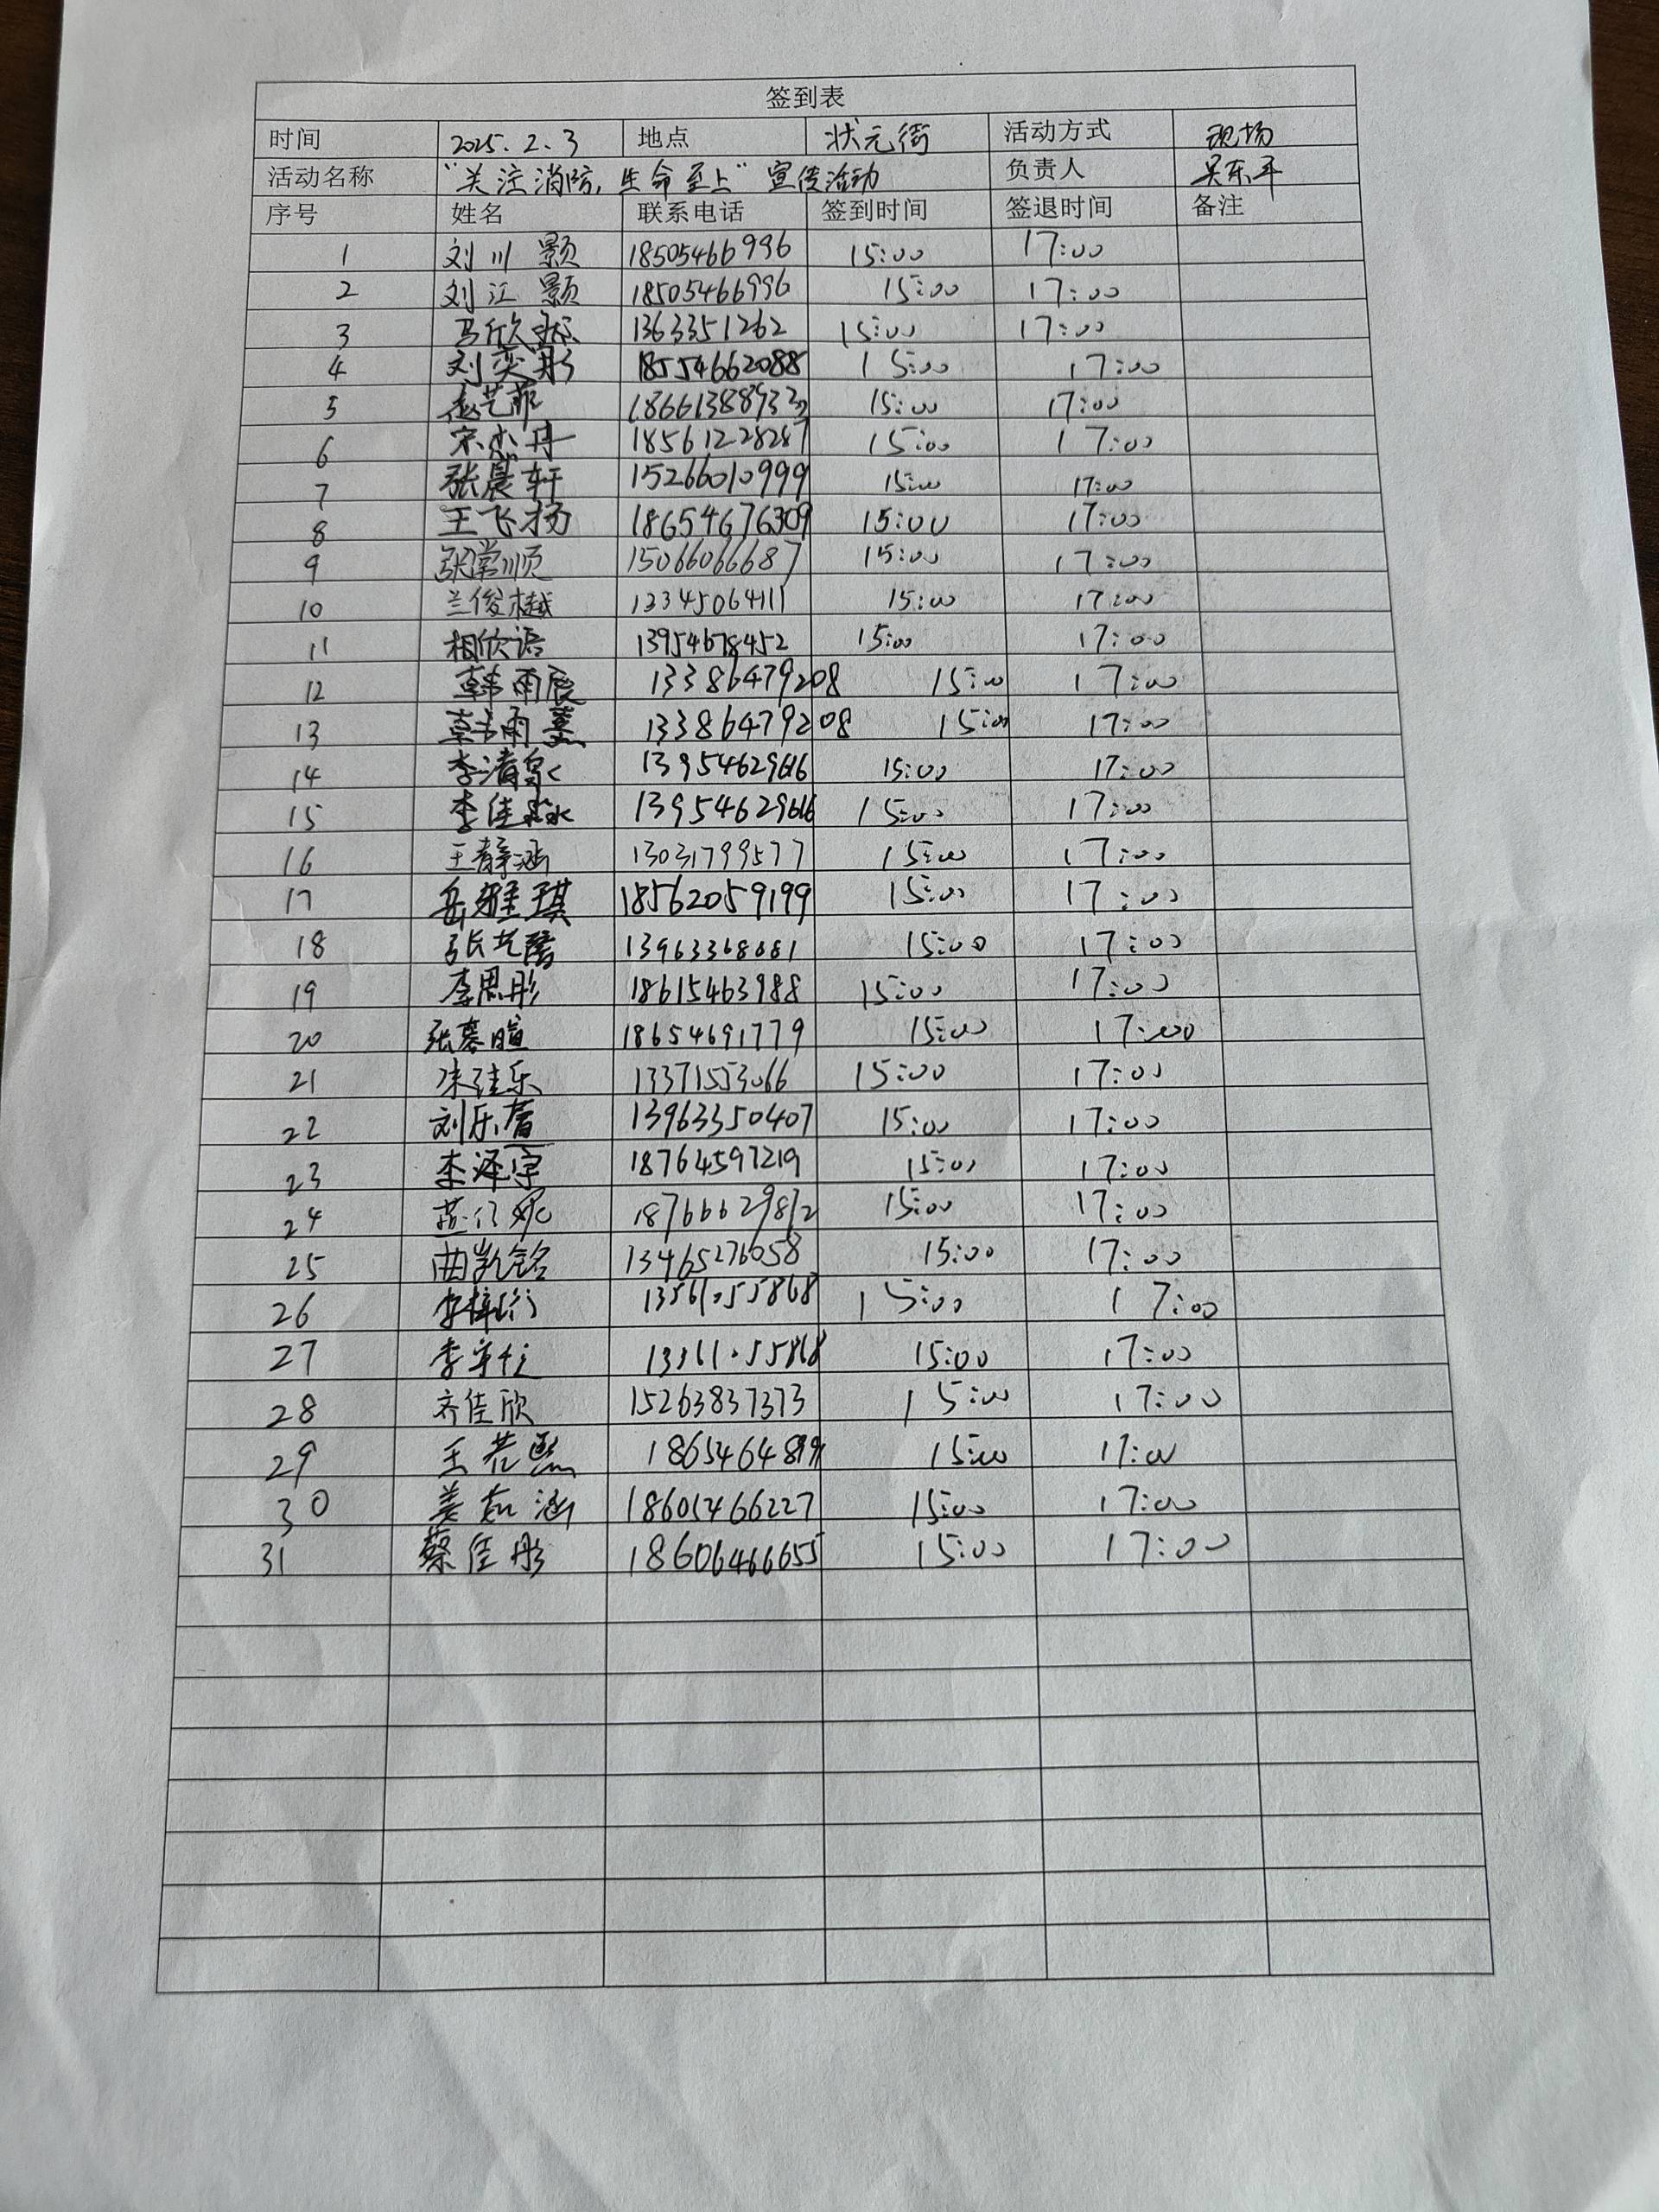 签到表
时间 2025.2.3 地点 状元街 活动方式 现场
活动名称 "关注消防,生命至上"宣传活动 负责人 吴东平
序号 姓名 联系电话 签到时间 签退时间 备注
1 刘川颢 18505466996 15:00 17:00
2 刘江颢 18505466996 15:00 17:00
3 1363351262 15:00 17:00
4 刘奕彤 18554662088 15:00 17:00
5 15:00 17:00
6 18561228287 15:00 17:00
7 张晨轩 15266010999 15:00 17:00
8 王飞扬 18654676309 15:00 17:00
9 张常顺 15066066687 15:00 17:00
10 兰俊樾 15:00 17:00
11 相欣语 13954678452 15:00 17:00
12 韩雨辰 13386479208 15:00 17:00
13 13386479208 15:00 17:00
14 李清泉 13954629616 15:00 17:00
15 李佳淼 13954629616 15:00 17:00
16 王静涵 13031799577 15:00 17:00
17 岳雅琪 18562059199 15:00 17:00
18 15:00 17:00
19 李思彤 18615463988 15:00 17:00
20 张慕暄 18654691779 15:00 17:00
21 13371553066 15:00 17:00
22 13963350407 15:00 17:00
23 李泽宇 18764597219 15:00 17:00
24 18766629812 15:00 17:00
25 曲凯铭 13465276058 15:00 17:00
26 15:00 17:00
27 15:00 17:00
28 齐佳欣 15263837373 15:00 17:00
29 王若熙 15:00 17:00
30 姜如涵 15:00 17:00
31 蔡佳彤 18606466655 15:00 17:00